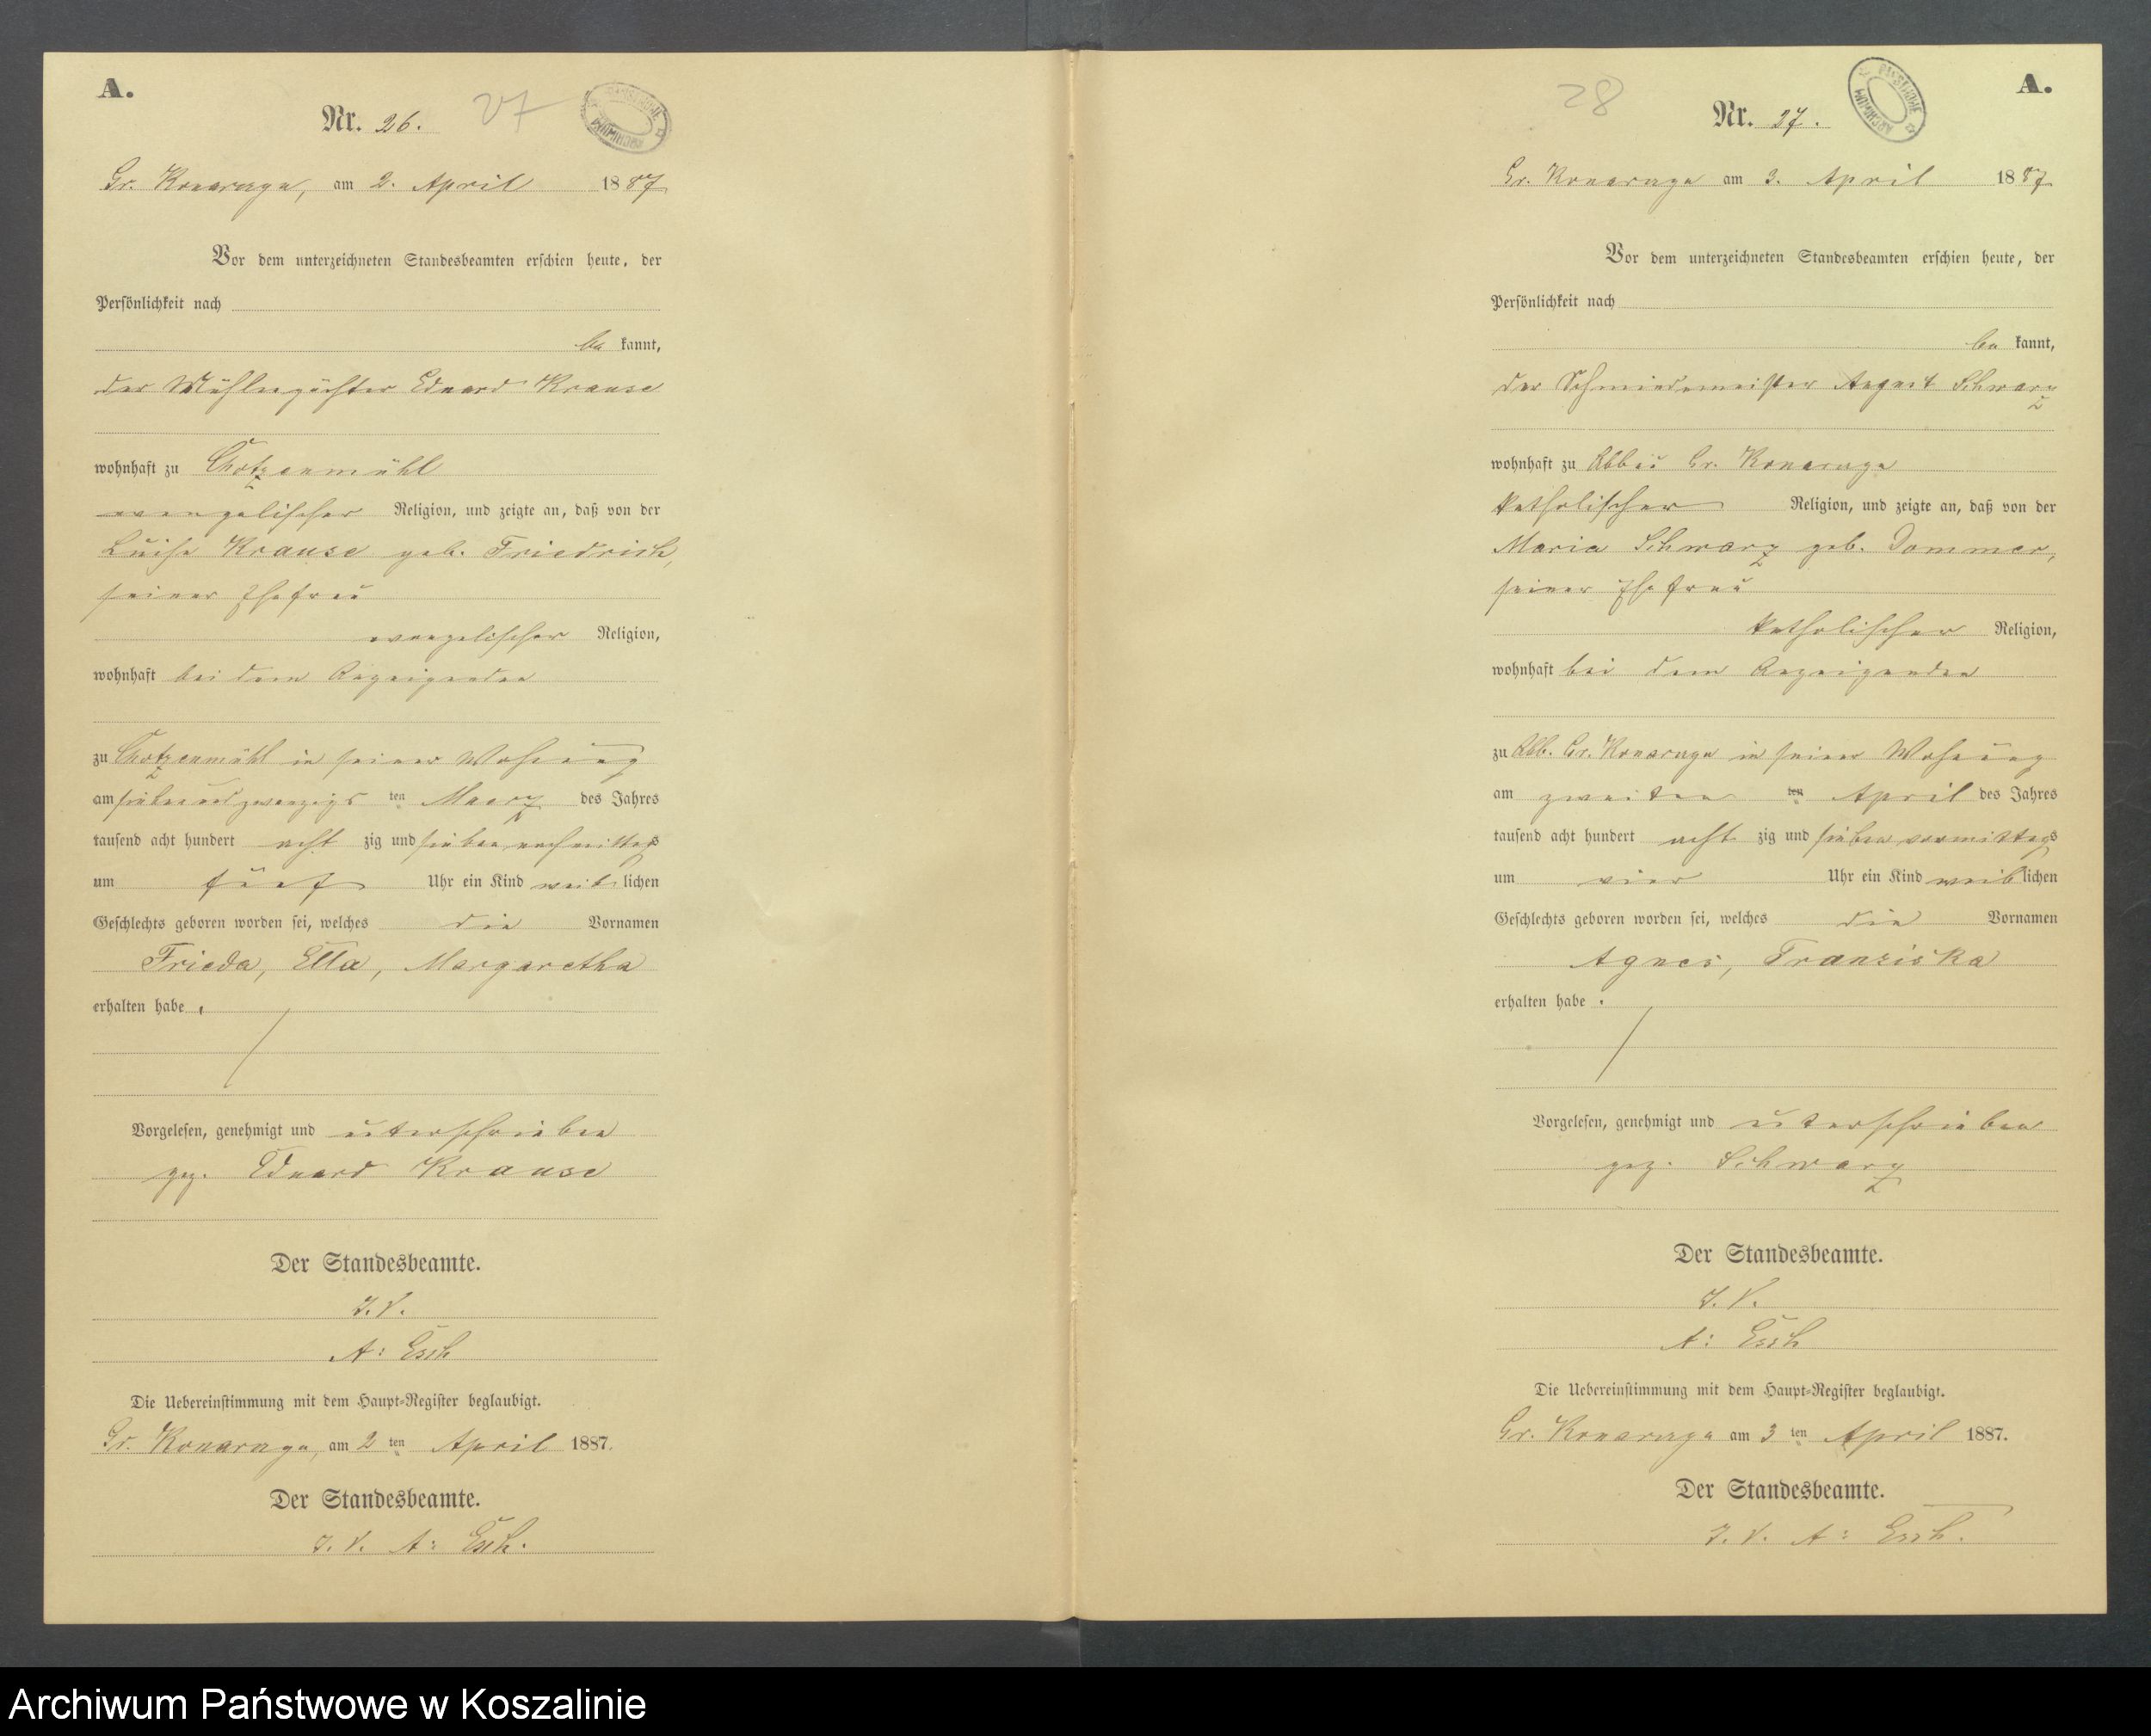 A.
Nr. 26.
27
ARCHIWUM PAŃSTWOWE
Gr. Konarzyn, am 2. April 1887
Vor dem unterzeichneten Standesbeamten erschien heute, der
Persönlichkeit nach
be kannt,
der Mühlenpächter Eduard Krause
wohnhaft zu Chotzenmühl
evangelischer Religion, und zeigte an, daß von der
Luise Krause geb. Friedrich,
seiner Ehefrau
evangelischer Religion,
wohnhaft bei dem Anzeigenden
zu Chotzenmühl in seiner Wohnung
am siebenundzwanzigs ten Maerz des Jahres
tausend acht hundert acht zig und sieben nachmittags
um fünf Uhr ein Kind weib lichen
Geschlechts geboren worden sei, welches die Vornamen
Frieda, Ella, Margaretha
erhalten habe.
Vorgelesen, genehmigt und unterschrieben
gez. Eduard Krause
Der Standesbeamte.
I. V.
A: Esch
Die Uebereinstimmung mit dem Haupt-Register beglaubigt.
Gr. Konarzyn, am 2 ten April 1887.
Der Standesbeamte.
I. V. A: Esch.
A.
28
Nr. 27.
ARCHIWUM PAŃSTWOWE
Gr. Konarzyn am 3. April 1887
Vor dem unterzeichneten Standesbeamten erschien heute, der
Persönlichkeit nach
be kannt,
der Schmiedemeister August Schwarz
wohnhaft zu Abbau Gr. Konarzyn
katholischer Religion, und zeigte an, daß von der
Maria Schwarz geb. Dommer,
seiner Ehefrau
katholischer Religion,
wohnhaft bei dem Anzeigenden
zu Abb. Gr. Konarzyn in seiner Wohnung
am zweiten ten April des Jahres
tausend acht hundert acht zig und sieben vormittags
um vier Uhr ein Kind weib lichen
Geschlechts geboren worden sei, welches die Vornamen
Agnes, Franziska
erhalten habe.
Vorgelesen, genehmigt und unterschrieben
gez. Schwarz
Der Standesbeamte.
I. V.
A: Esch
Die Uebereinstimmung mit dem Haupt-Register beglaubigt.
Gr. Konarzyn am 3 ten April 1887.
Der Standesbeamte.
I. V. A: Esch.
Archiwum Państwowe w Koszalinie